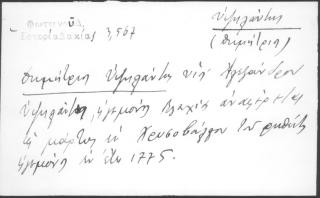 Φωτεινού,
Ιστορία Δακίας 3,567
Υψηλάντης
(Δημήτριος)
Δημήτριος Υψηλάντης υιός Αλεξάνδρου
Υψηλάντη, ηγεμόνος Βλαχίας αναφέρεται
ως μάρτυς εν Χρυσοβούλλω του
ηγεμόνος εν έτει 1775.